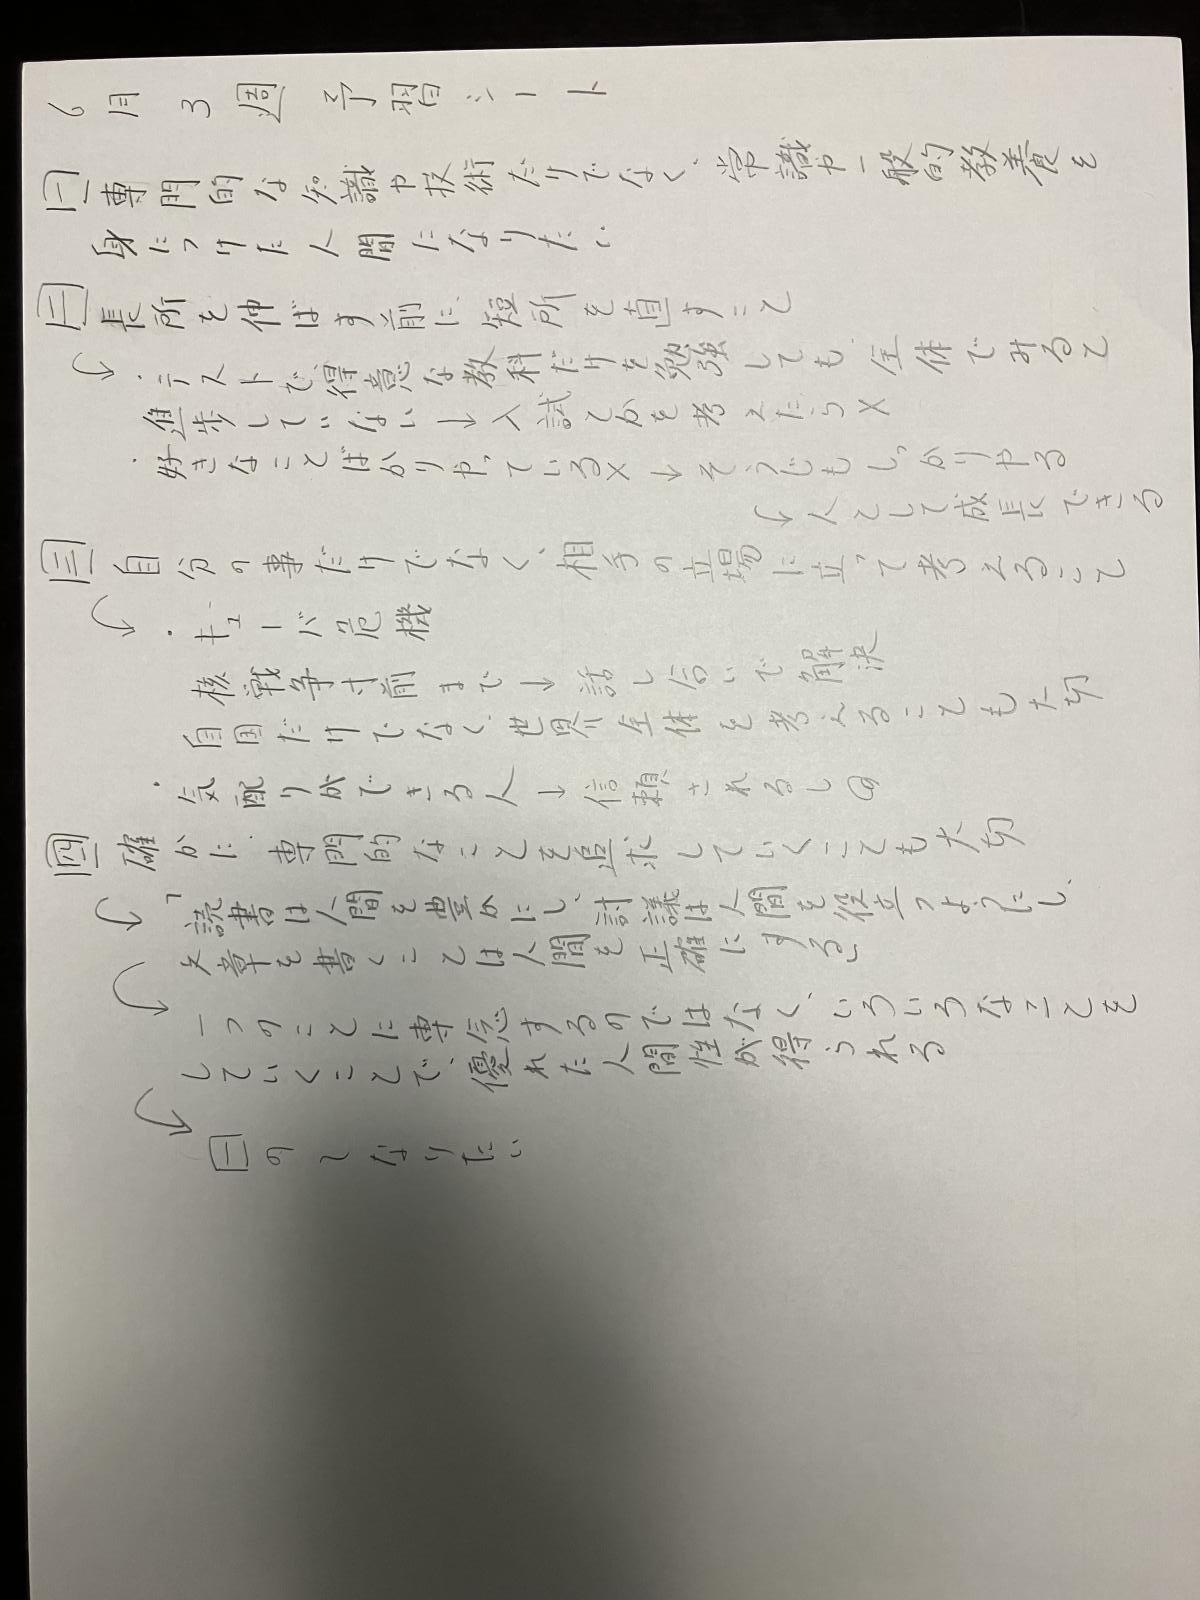 6月3週 予習シート
一 専門的な知識や技術だけでなく、常識や一般的教養を
身につけた人間になりたい
二 長所を伸ばす前に、短所を直すこと
・テストで、得意な教科だけを勉強しても、全体でみると
進歩していない→入試とかを考えたら×
・好きなことばかりやっている×→そうじもしっかりやる
↳人として成長できる
三 自分の事だけでなく、相手の立場に立って考えること
・キューバ危機
核戦争寸前まで→話し合いで解決
自国だけでなく、世界全体を考えることも大切
・気配りができる人→信頼されるし
四 確かに、専門的なことを追求していくことも大切
「読書は人間を豊かにし、討議は人間を役立つようにし、
文章を書くことは人間を正確にする」
一つのことに専念するのではなく、いろいろなことを
していくことで、優れた人間性が得られる
一の〜なりたい